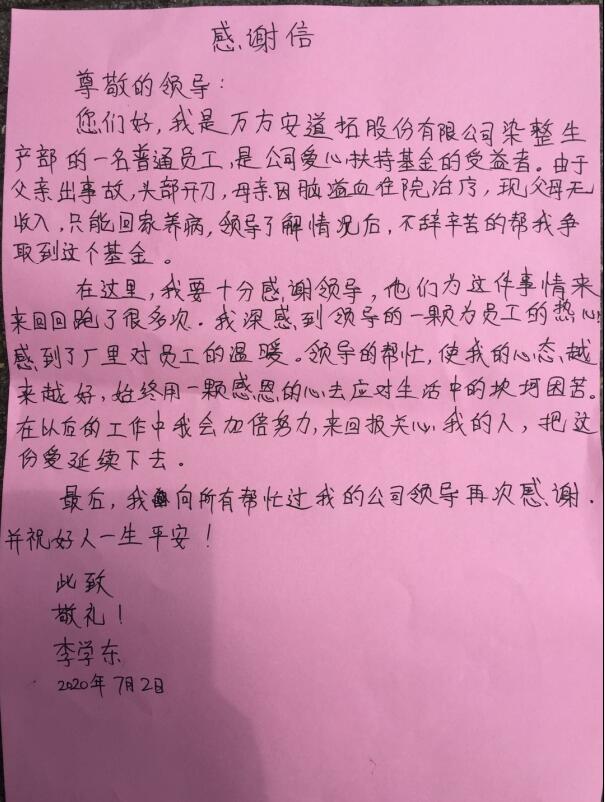 感谢信
尊敬的领导：
您们好，我是万方安道拓股份有限公司染整生
产部的一名普通员工，是公司爱心扶持基金的受益者。由于
父亲出事故，头部开刀，母亲因脑溢血住院治疗，现父母无
收入，只能回家养病，领导了解情况后，不辞辛苦的帮我争
取到这个基金。
在这里，我要十分感谢领导，他们为这件事情来
来回回跑了很多次．我深感到领导的一颗为员工的热心
感到了厂里对员工的温暖。领导的帮忙，使我的心态越
来越好，始终用一颗感恩的心去应对生活中的坎坷困苦。
在以后的工作中我会加倍努力，来回报关心我的人，把这
份爱延续下去。
最后，我向所有帮忙过我的公司领导再次感谢．
并祝好人一生平安！
此致
敬礼！
李学东
2020年7月2日